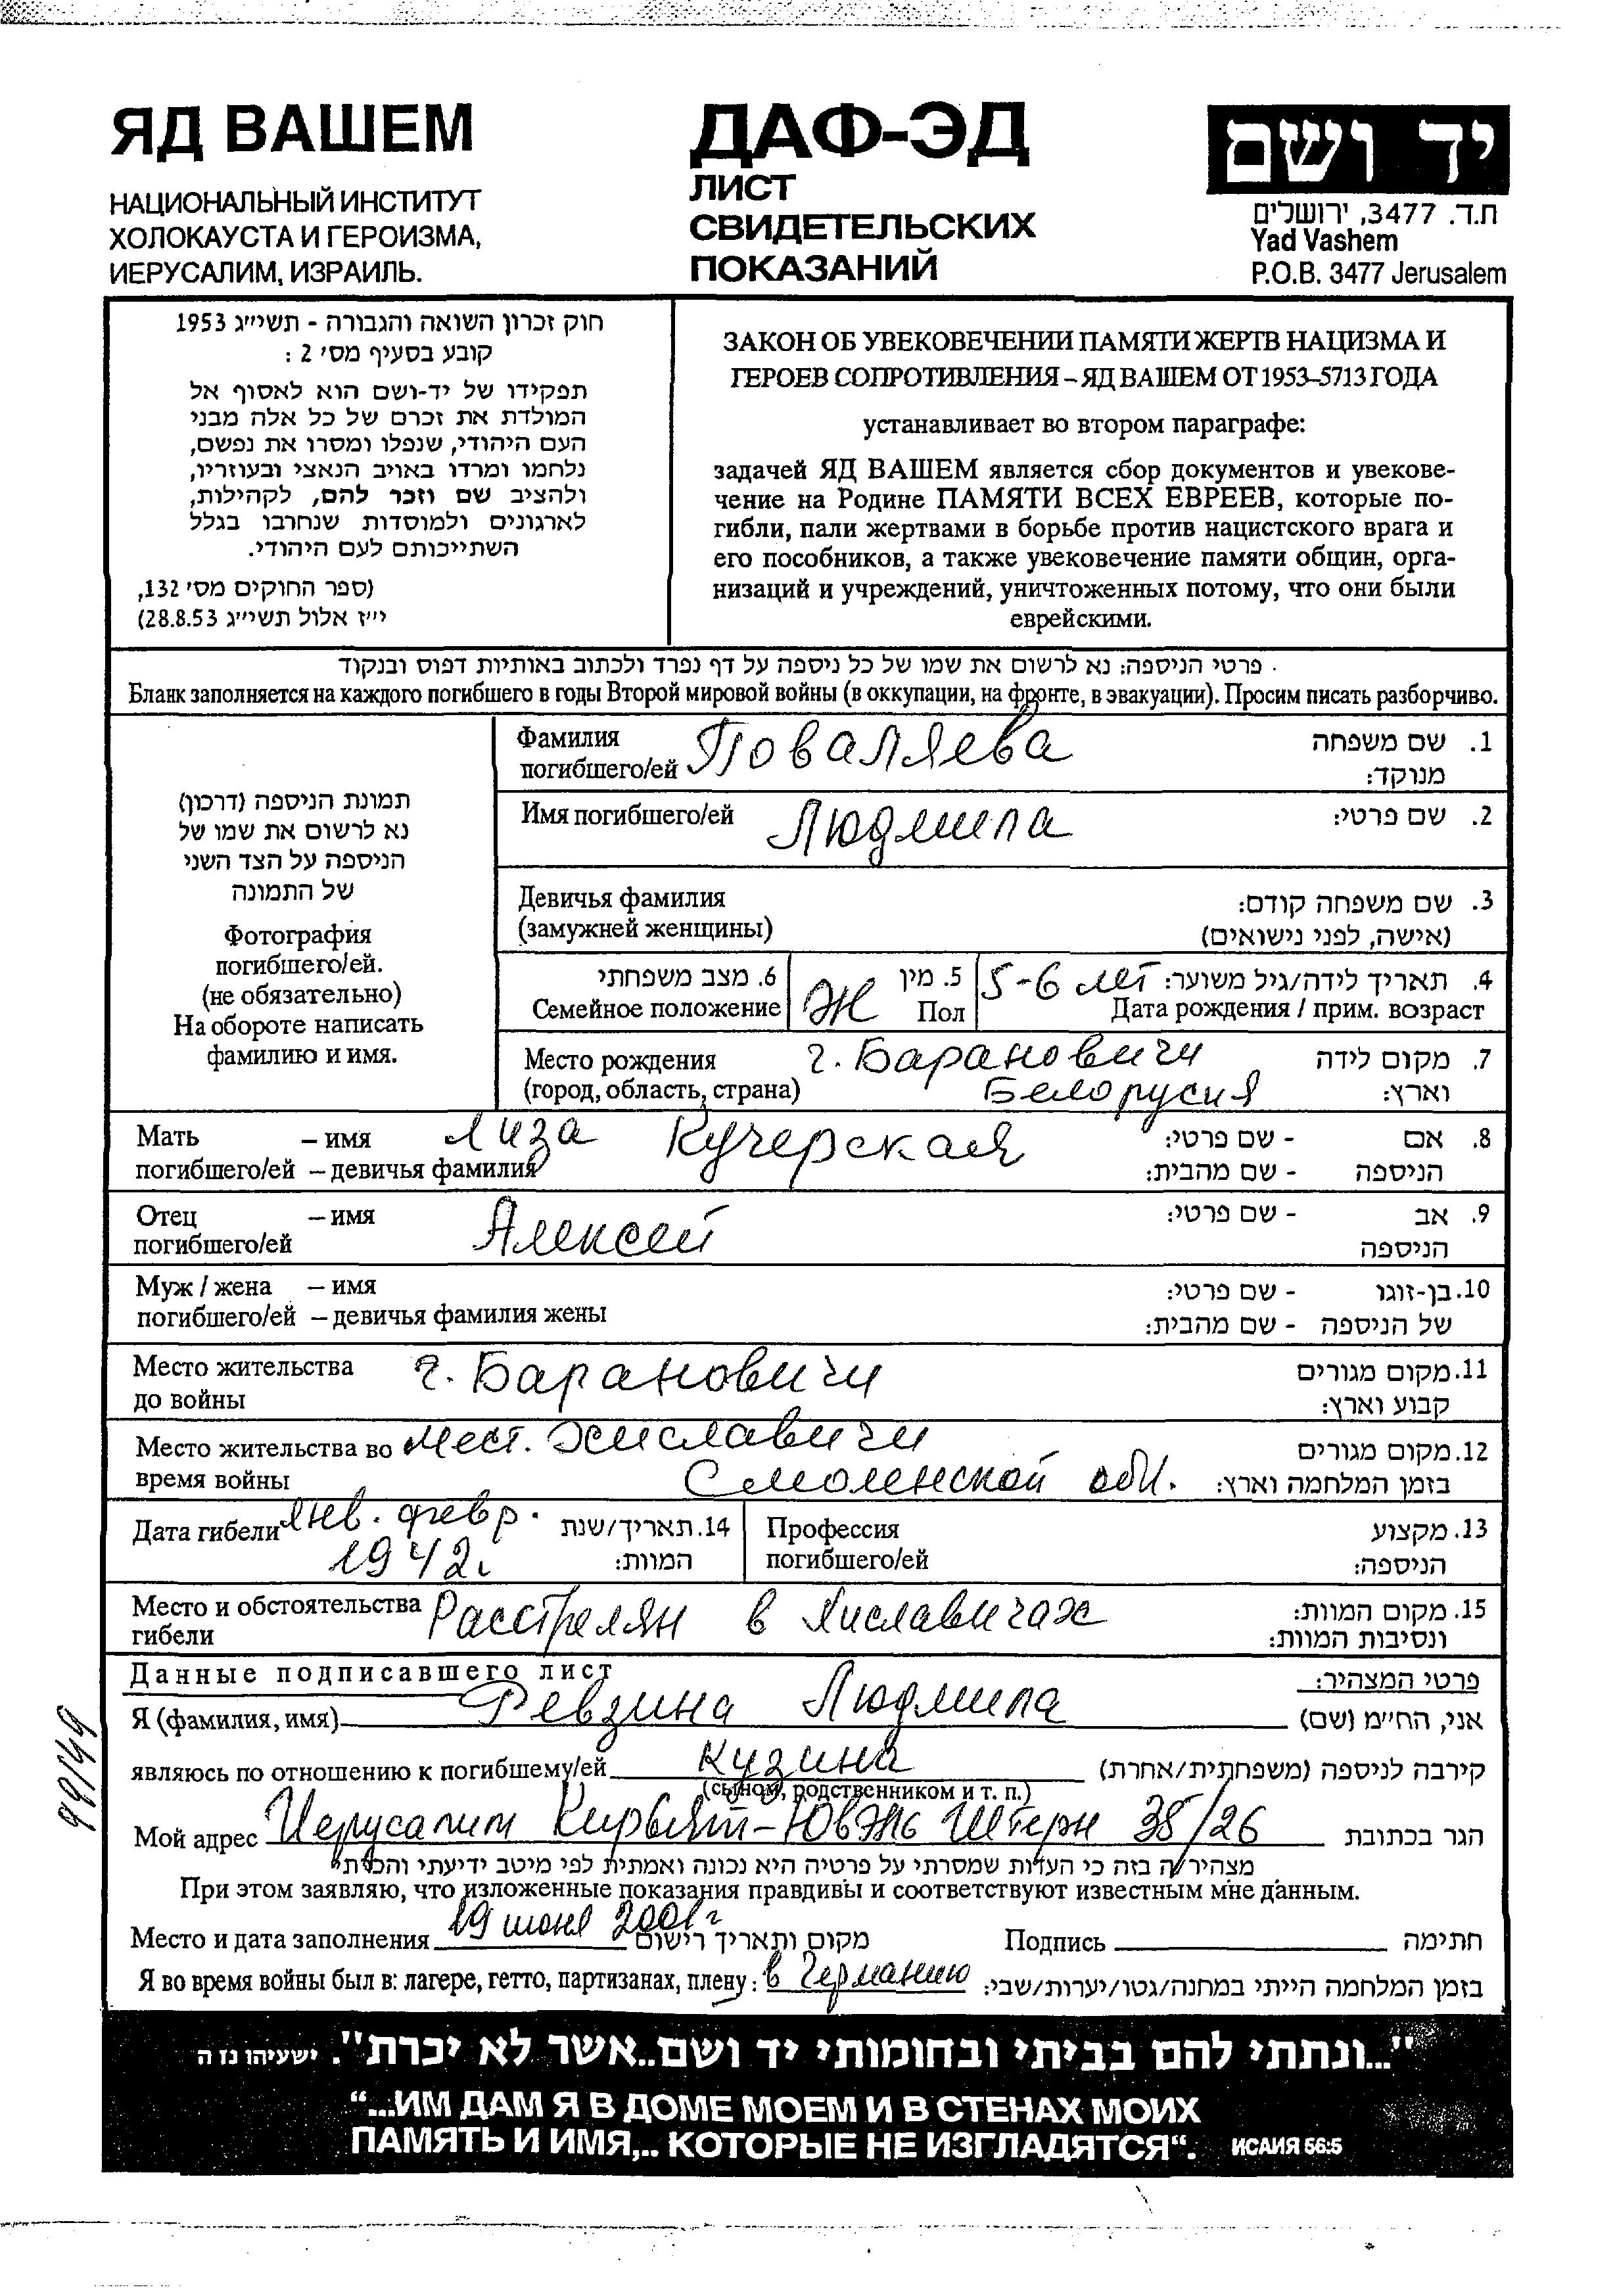 ЯД ВАШЕМ
НАЦИОНАЛЬНЫЙ ИНСТИТУТ
ХОЛОКАУСТА И ГЕРОИЗМА,
ИЕРУСАЛИМ, ИЗРАИЛЬ.
ДАФ-ЭД
ЛИСТ
СВИДЕТЕЛЬСКИХ
ПОКАЗАНИЙ
יד ושם
ת.ד. 3477, ירושלים
Yad Vashem
P.O.B. 3477 Jerusalem
חוק זכרון השואה והגבורה - תשי״ג 1953
קובע בסעיף מס׳ 2 :
תפקידו של יד-ושם הוא לאסוף אל
המולדת את זכרם של כל אלה מבני
העם היהודי, שנפלו ומסרו את נפשם,
נלחמו ומרדו באויב הנאצי ובעוזריו,
ולהציב שם וזכר להם, לקהילות,
לארגונים ולמוסדות שנחרבו בגלל
השתייכותם לעם היהודי.
(ספר החוקים מס׳ 132,
י״ז אלול תשי״ג 28.8.53)
ЗАКОН ОБ УВЕКОВЕЧЕНИИ ПАМЯТИ ЖЕРТВ НАЦИЗМА И
ГЕРОЕВ СОПРОТИВЛЕНИЯ – ЯД ВАШЕМ ОТ 1953–5713 ГОДА
устанавливает во втором параграфе:
задачей ЯД ВАШЕМ является сбор документов и увекове-
чение на Родине ПАМЯТИ ВСЕХ ЕВРЕЕВ, которые по-
гибли, пали жертвами в борьбе против нацистского врага и
его пособников, а также увековечение памяти общин, орга-
низаций и учреждений, уничтоженных потому, что они были
еврейскими.
פרטי הניספה: נא לרשום את שמו של כל ניספה על דף נפרד ולכתוב באותיות דפוס ובנקוד .
Бланк заполняется на каждого погибшего в годы Второй мировой войны (в оккупации, на фронте, в эвакуации). Просим писать разборчиво.
תמונת הניספה (דרכון)
נא לרשום את שמו של
הניספה על הצד השני
של התמונה
Фотография
погибшего/ей.
(не обязательно)
На обороте написать
фамилию и имя.
Фамилия Поваляева 1. שם משפחה
погибшего/ей מנוקד:
Имя погибшего/ей Людмила 2. שם פרטי:
Девичья фамилия 3. שם משפחה קודם:
(замужней женщины) (אישה, לפני נישואים)
6. מצב משפחתי 5. מין 5-6 лет 4. תאריך לידה/גיל משוער:
Семейное положение Ж Пол Дата рождения / прим. возраст
Место рождения г. Барановичи 7. מקום לידה
(город, область, страна) Белорусия וארץ:
Мать – имя Лиза Кучерская 8. אם - שם פרטי:
погибшего/ей – девичья фамилия הניספה - שם מהבית:
Отец – имя Алексей 9. אב - שם פרטי:
погибшего/ей הניספה
Муж / жена – имя 10. בן-זוגו - שם פרטי:
погибшего/ей – девичья фамилия жены של הניספה - שם מהבית:
Место жительства г. Барановичи 11. מקום מגורים
до войны קבוע וארץ:
Место жительства во мест. Хиславичи 12. מקום מגורים
время войны Смоленской обл. בזמן המלחמה וארץ:
Дата гибели янв. февр. 14. תאריך/שנת Профессия 13. מקצוע
1942г המוות: погибшего/ей הניספה:
Место и обстоятельства Расстрелян в Хиславичах 15. מקום המוות:
гибели ונסיבות המוות:
Данные подписавшего лист פרטי המצהיר:
Я (фамилия, имя) Ревзина Людмила אני, החי״מ (שם)
являюсь по отношению к погибшему/ей кузина קירבה לניספה (משפחתית/אחרת)
(сыном, родственником и т. п.)
Мой адрес Иерусалим Кирьят-Ювэль Штерн 38/26 הגר בכתובת
מצהיר/ה בזה כי העדות שמסרתי על פרטיה היא נכונה ואמתית לפי מיטב ידיעתי והכרתי
При этом заявляю, что изложенные показания правдивы и соответствуют известным мне данным.
Место и дата заполнения 19 июня 2001г מקום ותאריך רישום Подпись חתימה
Я во время войны был в: лагере, гетто, партизанах, плену: в Германию בזמן המלחמה הייתי במחנה/גטו/יערות/שבי:
99/49
"...ונתתי להם בביתי ובחומותי יד ושם..אשר לא יכרת". ישעיהו נז ה
“...ИМ ДАМ Я В ДОМЕ МОЕМ И В СТЕНАХ МОИХ
ПАМЯТЬ И ИМЯ,.. КОТОРЫЕ НЕ ИЗГЛАДЯТСЯ“. ИСАИЯ 56:5